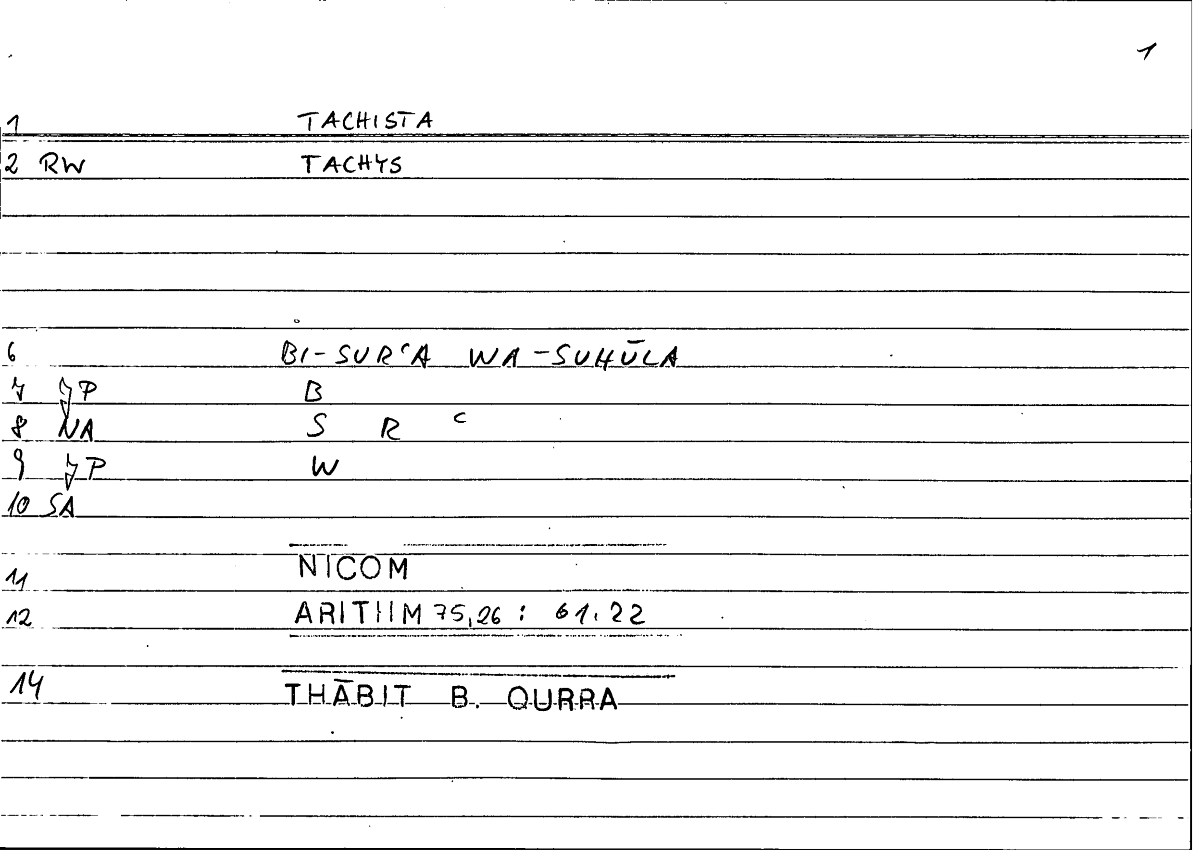 1
1 TACHISTA
2 RW TACHYS
6 BI-SURʿA WA-SUHŪLA
7 JP B
8 NA S R ʿ
9 JP W
10 SA
11 NICOM
12 ARITHM 75,26 : 61.22
14 THĀBIT B. QURRA